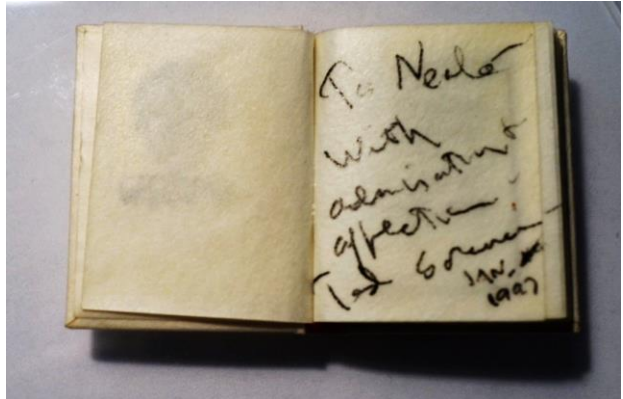 To Neale
With
admiration &
affection.
Ted Sorensen
JAN.
1997